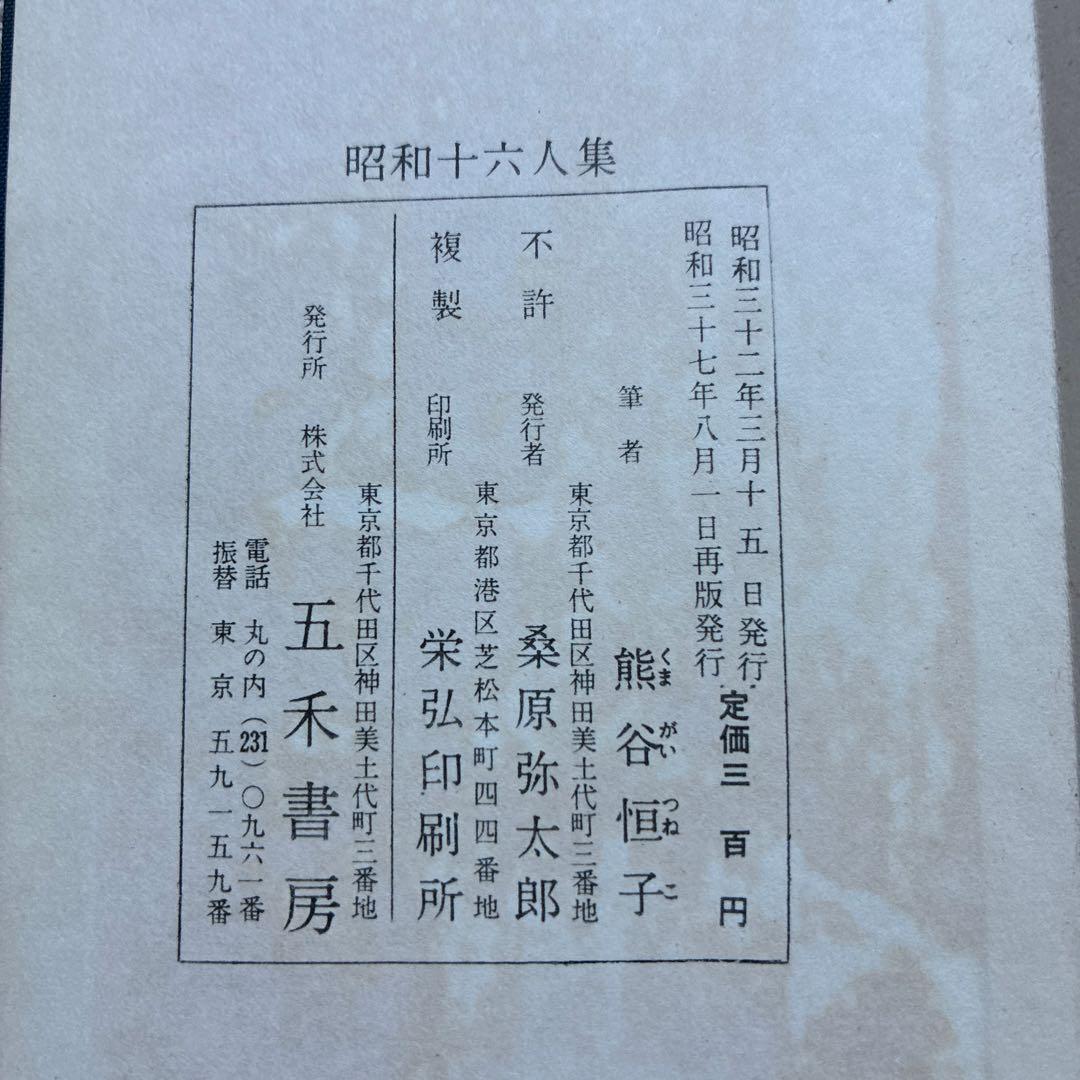 昭和十六人集
昭和三十二年三月十五日発行
昭和三十七年八月一日再版発行
定価三百円
筆者 熊谷恒子
くまがいつねこ
東京都千代田区神田美土代町三番地
不許 発行者 桑原弥太郎
東京都港区芝松本町四四番地
複製 印刷所 栄弘印刷所
東京都千代田区神田美土代町三番地
発行所 株式会社 五禾書房
電話 丸の内(231)〇九六一番
振替 東京 五九一五九番